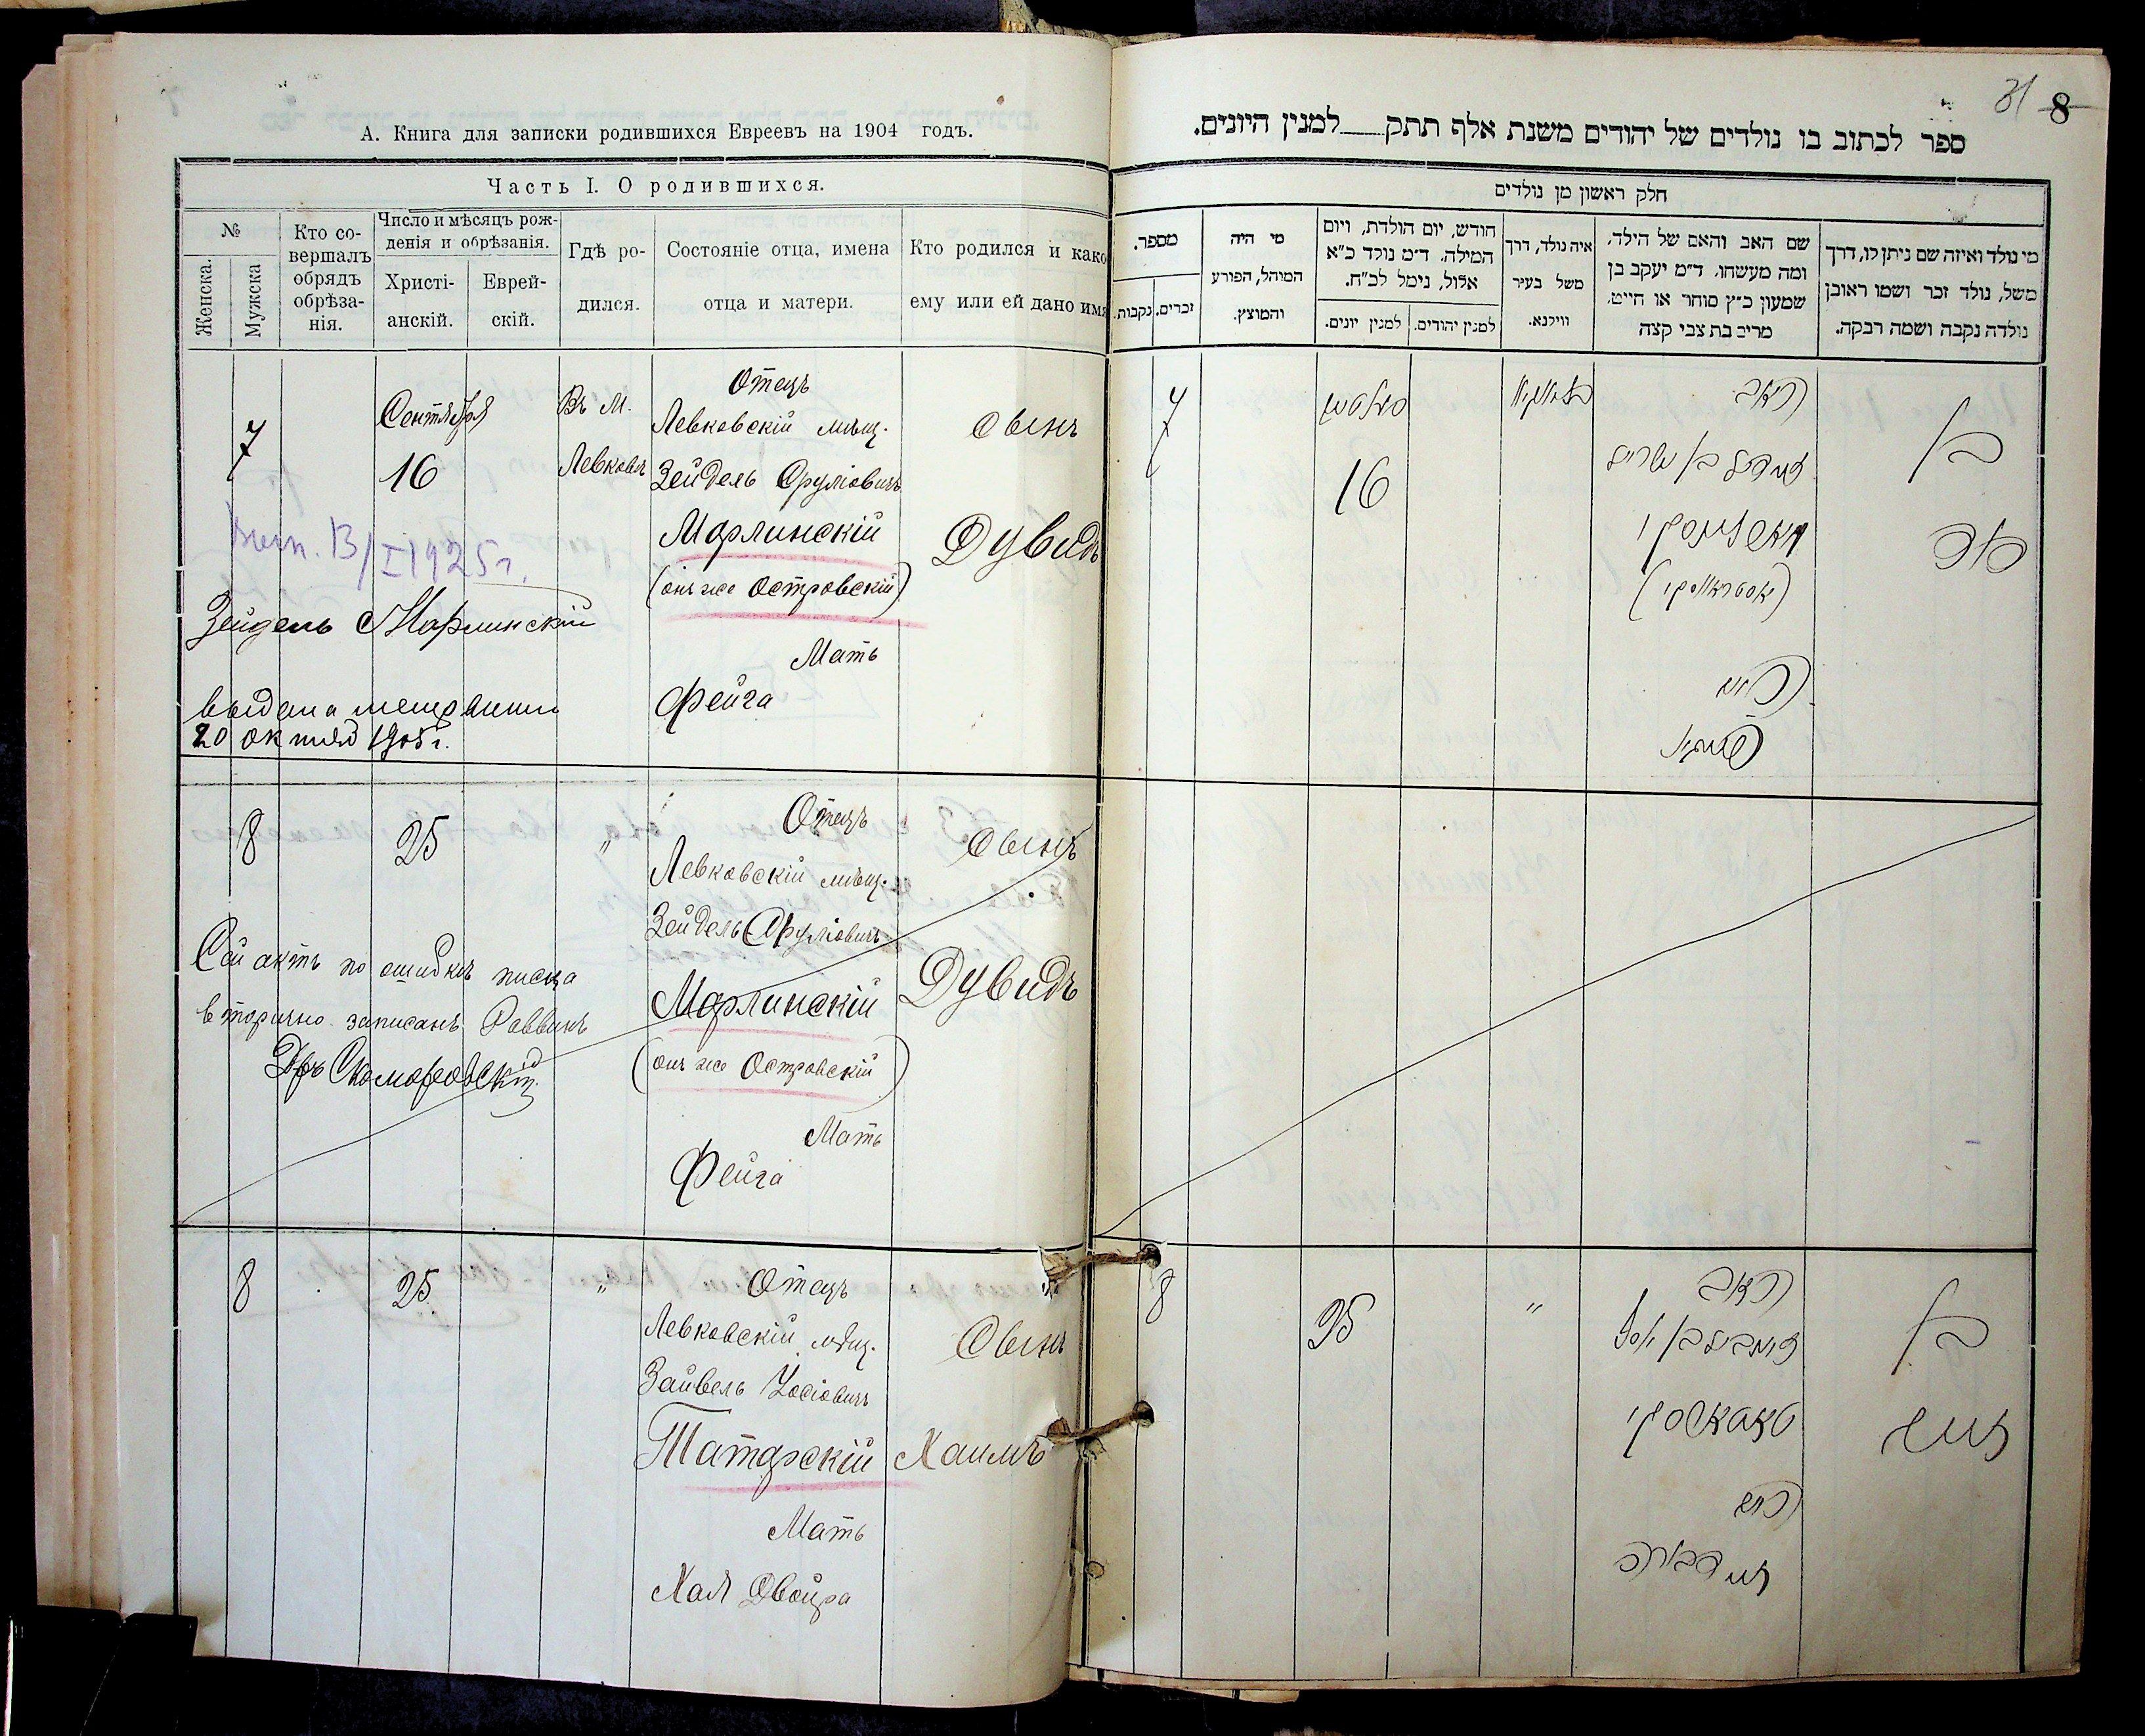 А. Книга для записки родившихся Евреевъ на 1904 годъ.
Часть I. О родившихся.
№
Женска.
Мужска
Кто со-
вершалъ
обрядъ
обрѣза-
нія.
Число и мѣсяцъ рож-
денія и обрѣзанія.
Христі-
анскій.
Еврей-
скій.
Гдѣ ро-
дился.
Состояніе отца, имена
отца и матери.
Кто родился и како
ему или ей дано имя
7
Сентября
16
Въ М.
Левковъ
Отецъ
Левковскій мѣщ.
Зейдель Сруліовичъ
Марлинскій
(онъ же Островскій)
Мать
Фейга
Сынъ
Дувидъ
13/I 1925 г.
Зейдель Марлинскій
выдана метрыка
20 октяб 1905 г.
8
25
"
Отецъ
Левковскій мѣщ.
Зейдель Сруліовичъ
Марлинскій
(онъ же Островскій)
Мать
Фейга
Сынъ
Дувидъ
Сей актъ по ошибкѣ писца
вторично записанъ Раввинъ
Дръ Скоморовскій
8
25
"
Отецъ
Левковскій мѣщ.
Зайвель Іосіовичъ
Татарскій
Мать
Хая Двойра
Сынъ
Хаимъ
31 8
ספר לכתוב בו נולדים של יהודים משנת אלף תתק למנין היונים.
חלק ראשון מן נולדים
מי נולד ואיזה שם ניתן לו, דרך
משל, נולד זכר ושמו ראובן
נולדה נקבה ושמה רבקה.
שם האב והאם של הילד,
ומה מעשהו. ד"מ יעקב בן
שמעון כ"ץ סוחר או חייט,
מרים בת צבי קצה
איה נולד, דרך
משל בעיר
ווילנא.
חודש, יום הולדת, ויום
המילה. ד"מ נולד כ"א
אלול, נימל לכ"ח.
למנין יהודים.
למנין יונים.
מי היה
המוהל, הפורע
והמוצץ.
מספר.
זכרים.
נקבות.
בן
דוד
האב
זיידל בן ישראל
מארלינסקי
(אסטראווסקי)
האם
פייגא
16
7
בן
חיים
האב
זייביל בן יוסל
טאטארסקי
האם
חי' דבורה
"
25
8